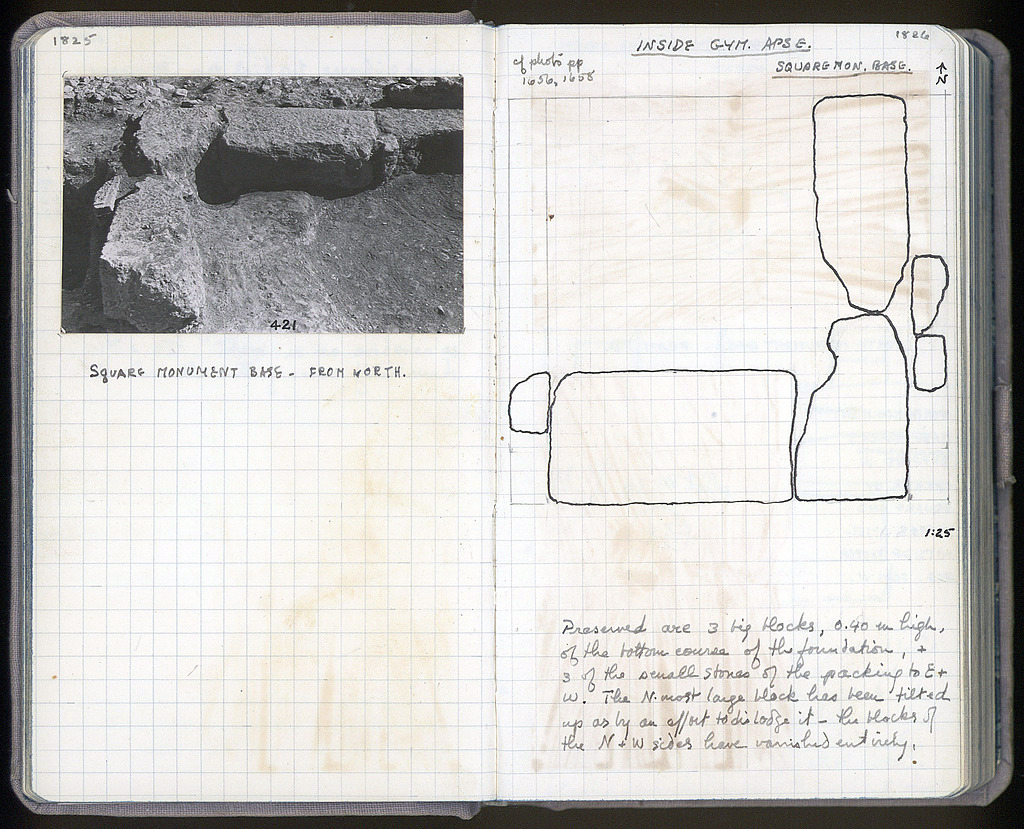 1825
421
SQUARE MONUMENT BASE - FROM NORTH.
1826
INSIDE GYM. APSE.
cf photo pp
1656, 1658
SQUARE MON. BASE.
N
1:25
Preserved are 3 big blocks, 0.40 m high,
of the bottom course of the foundation, +
3 of the small stones of the packing to E +
W. The N. most large block has been tilted
up as by an effort to dislodge it - the blocks of
the N + W sides have vanished entirely.